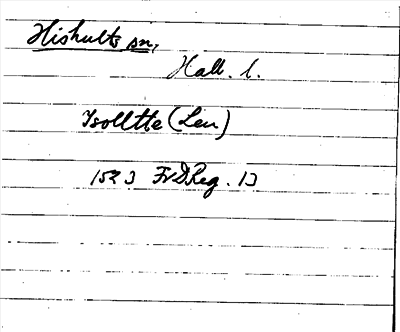 Hishults sn,
Hall. l.
Isolltte (Leu)
1523 FrDReg. 13